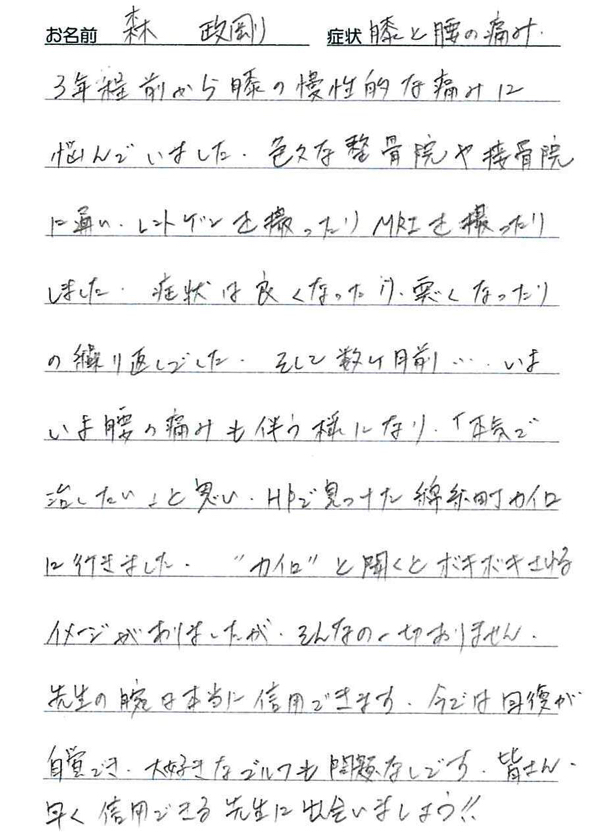 お名前 森 政剛 症状 膝と腰の痛み.
3年程前から膝の慢性的な痛みに
悩んでいました. 色々な整骨院や接骨院
に通い. レントゲンを撮ったりMRIを撮ったり
しました. 症状は良くなったり、悪くなったり
の繰り返しでした. そして数ヶ月前…. いま
いま腰の痛みも伴う様になり.「本気で
治したい」と思い. HPで見つけた錦糸町カイロ
に行きました. "カイロ"と聞くとボキボキされる
イメージがありましたが. そんなの一切ありません.
先生の腕は本当に信用できます. 今では回復が
自覚でき. 大好きなゴルフも問題なしです. 皆さん.
早く信用できる先生に出会いましょう!!